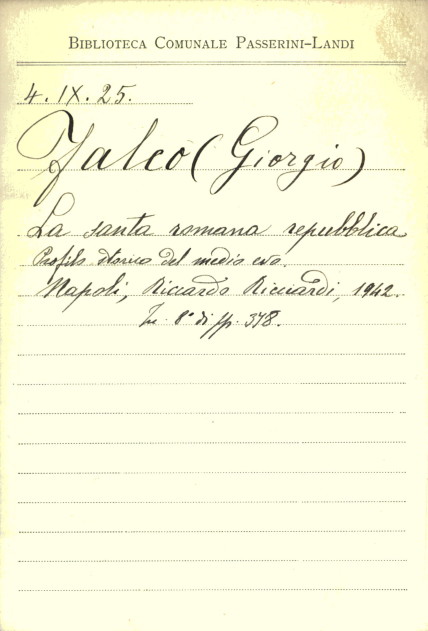 BIBLIOTECA COMUNALE PASSERINI-LANDI
4. IX. 25.
Falco (Giorgio)
La santa romana repubblica
Profilo storico del medio evo.
Napoli, Riccardo Ricciardi, 1942.
In 8° di pp. 378.